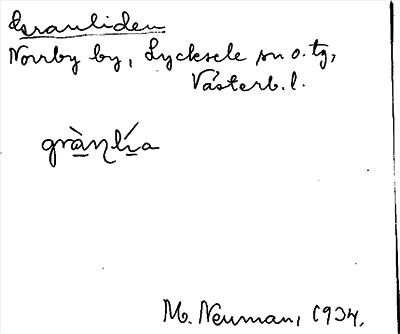 Granliden
Norrby by, Lycksele sn o. tg,
Västerb. l.
grànlía
M. Neuman, 1934.